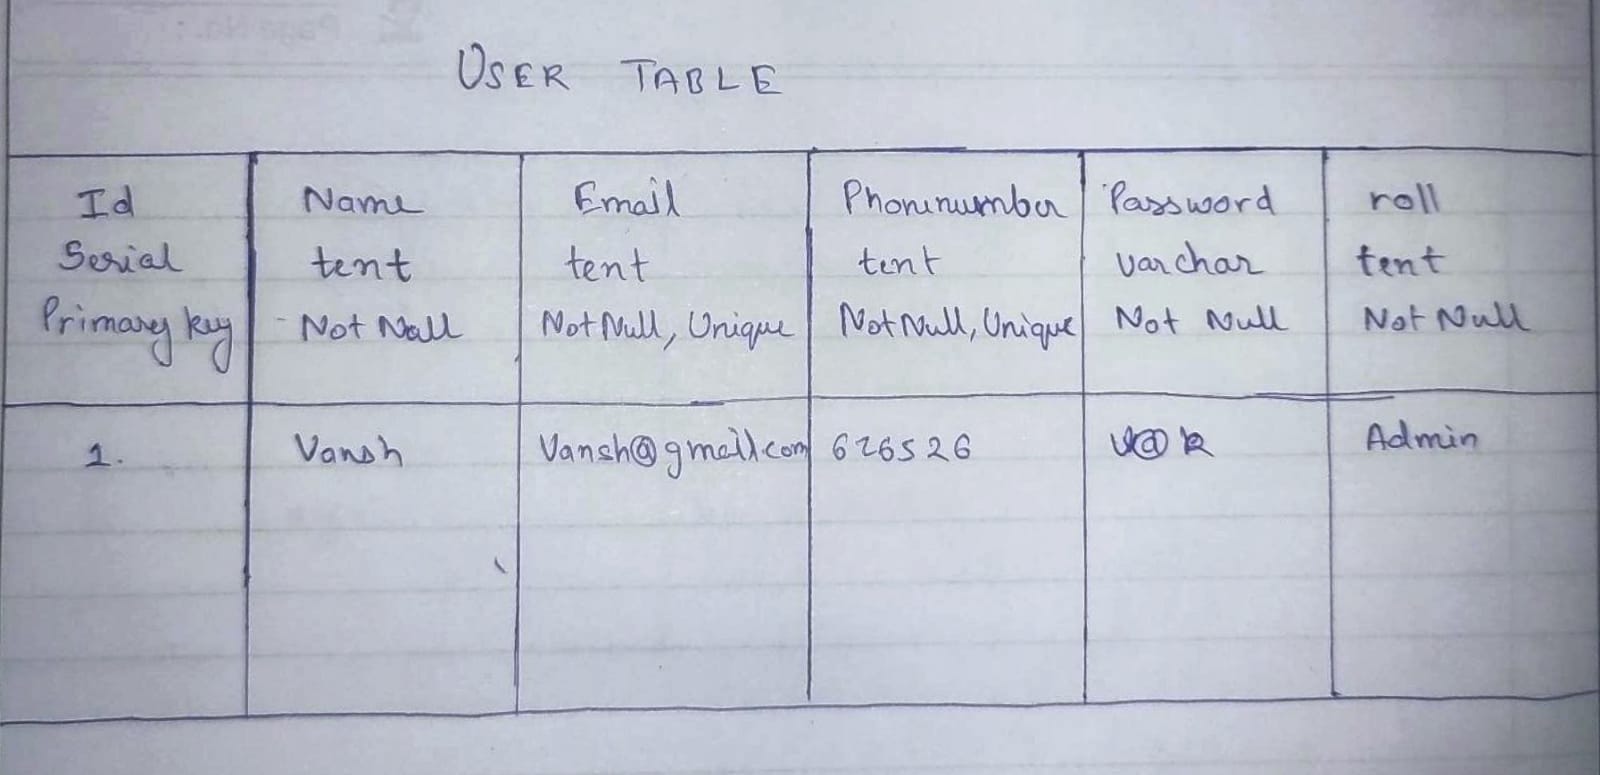 USER TABLE
Id Name Email Phonenumber Password roll
Serial tent tent tent varchar tent
Primary key Not Null Not Null, Unique Not Null, Unique Not Null Not Null
1. Vansh Vansh@gmail.com 626526 Admin